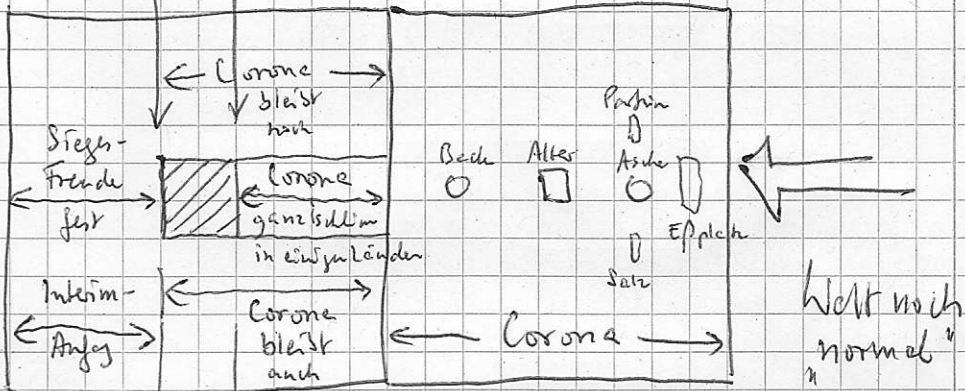 Corona
bleibt
noch
Sieges-
Freude
fest
Corona
ganz schlimm
in einigen Ländern
Interim-
Anfag
Corona
bleibt
auch
Beck
Altar
Parfüm
Asche
Eßplatz
Salz
Corona
Welt noch
"normal"